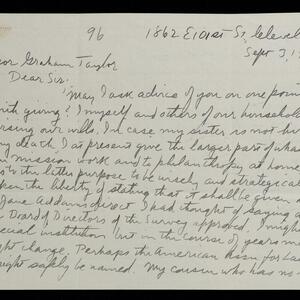 96
1862 E 101st St, Clevel
Sept 3, 1
sor Graham Taylor
Dear Sir:
May I ask advice of you on one poin
with giving? I myself and others of our household
ising our wills. In case my sister is not
my death I at present give the larger part of wha
mission work and to philanthropy at home
the latter purpose to be wisely and strategica
ken the liberty of stating that it shall be given
Jane Addams direct. I had thought of saying a
Board of Directors of the Survey approved. I might
ecial institution but in the course of years m
ght change. Perhaps the American Assn for La
ight safely be named. My cousin who has no